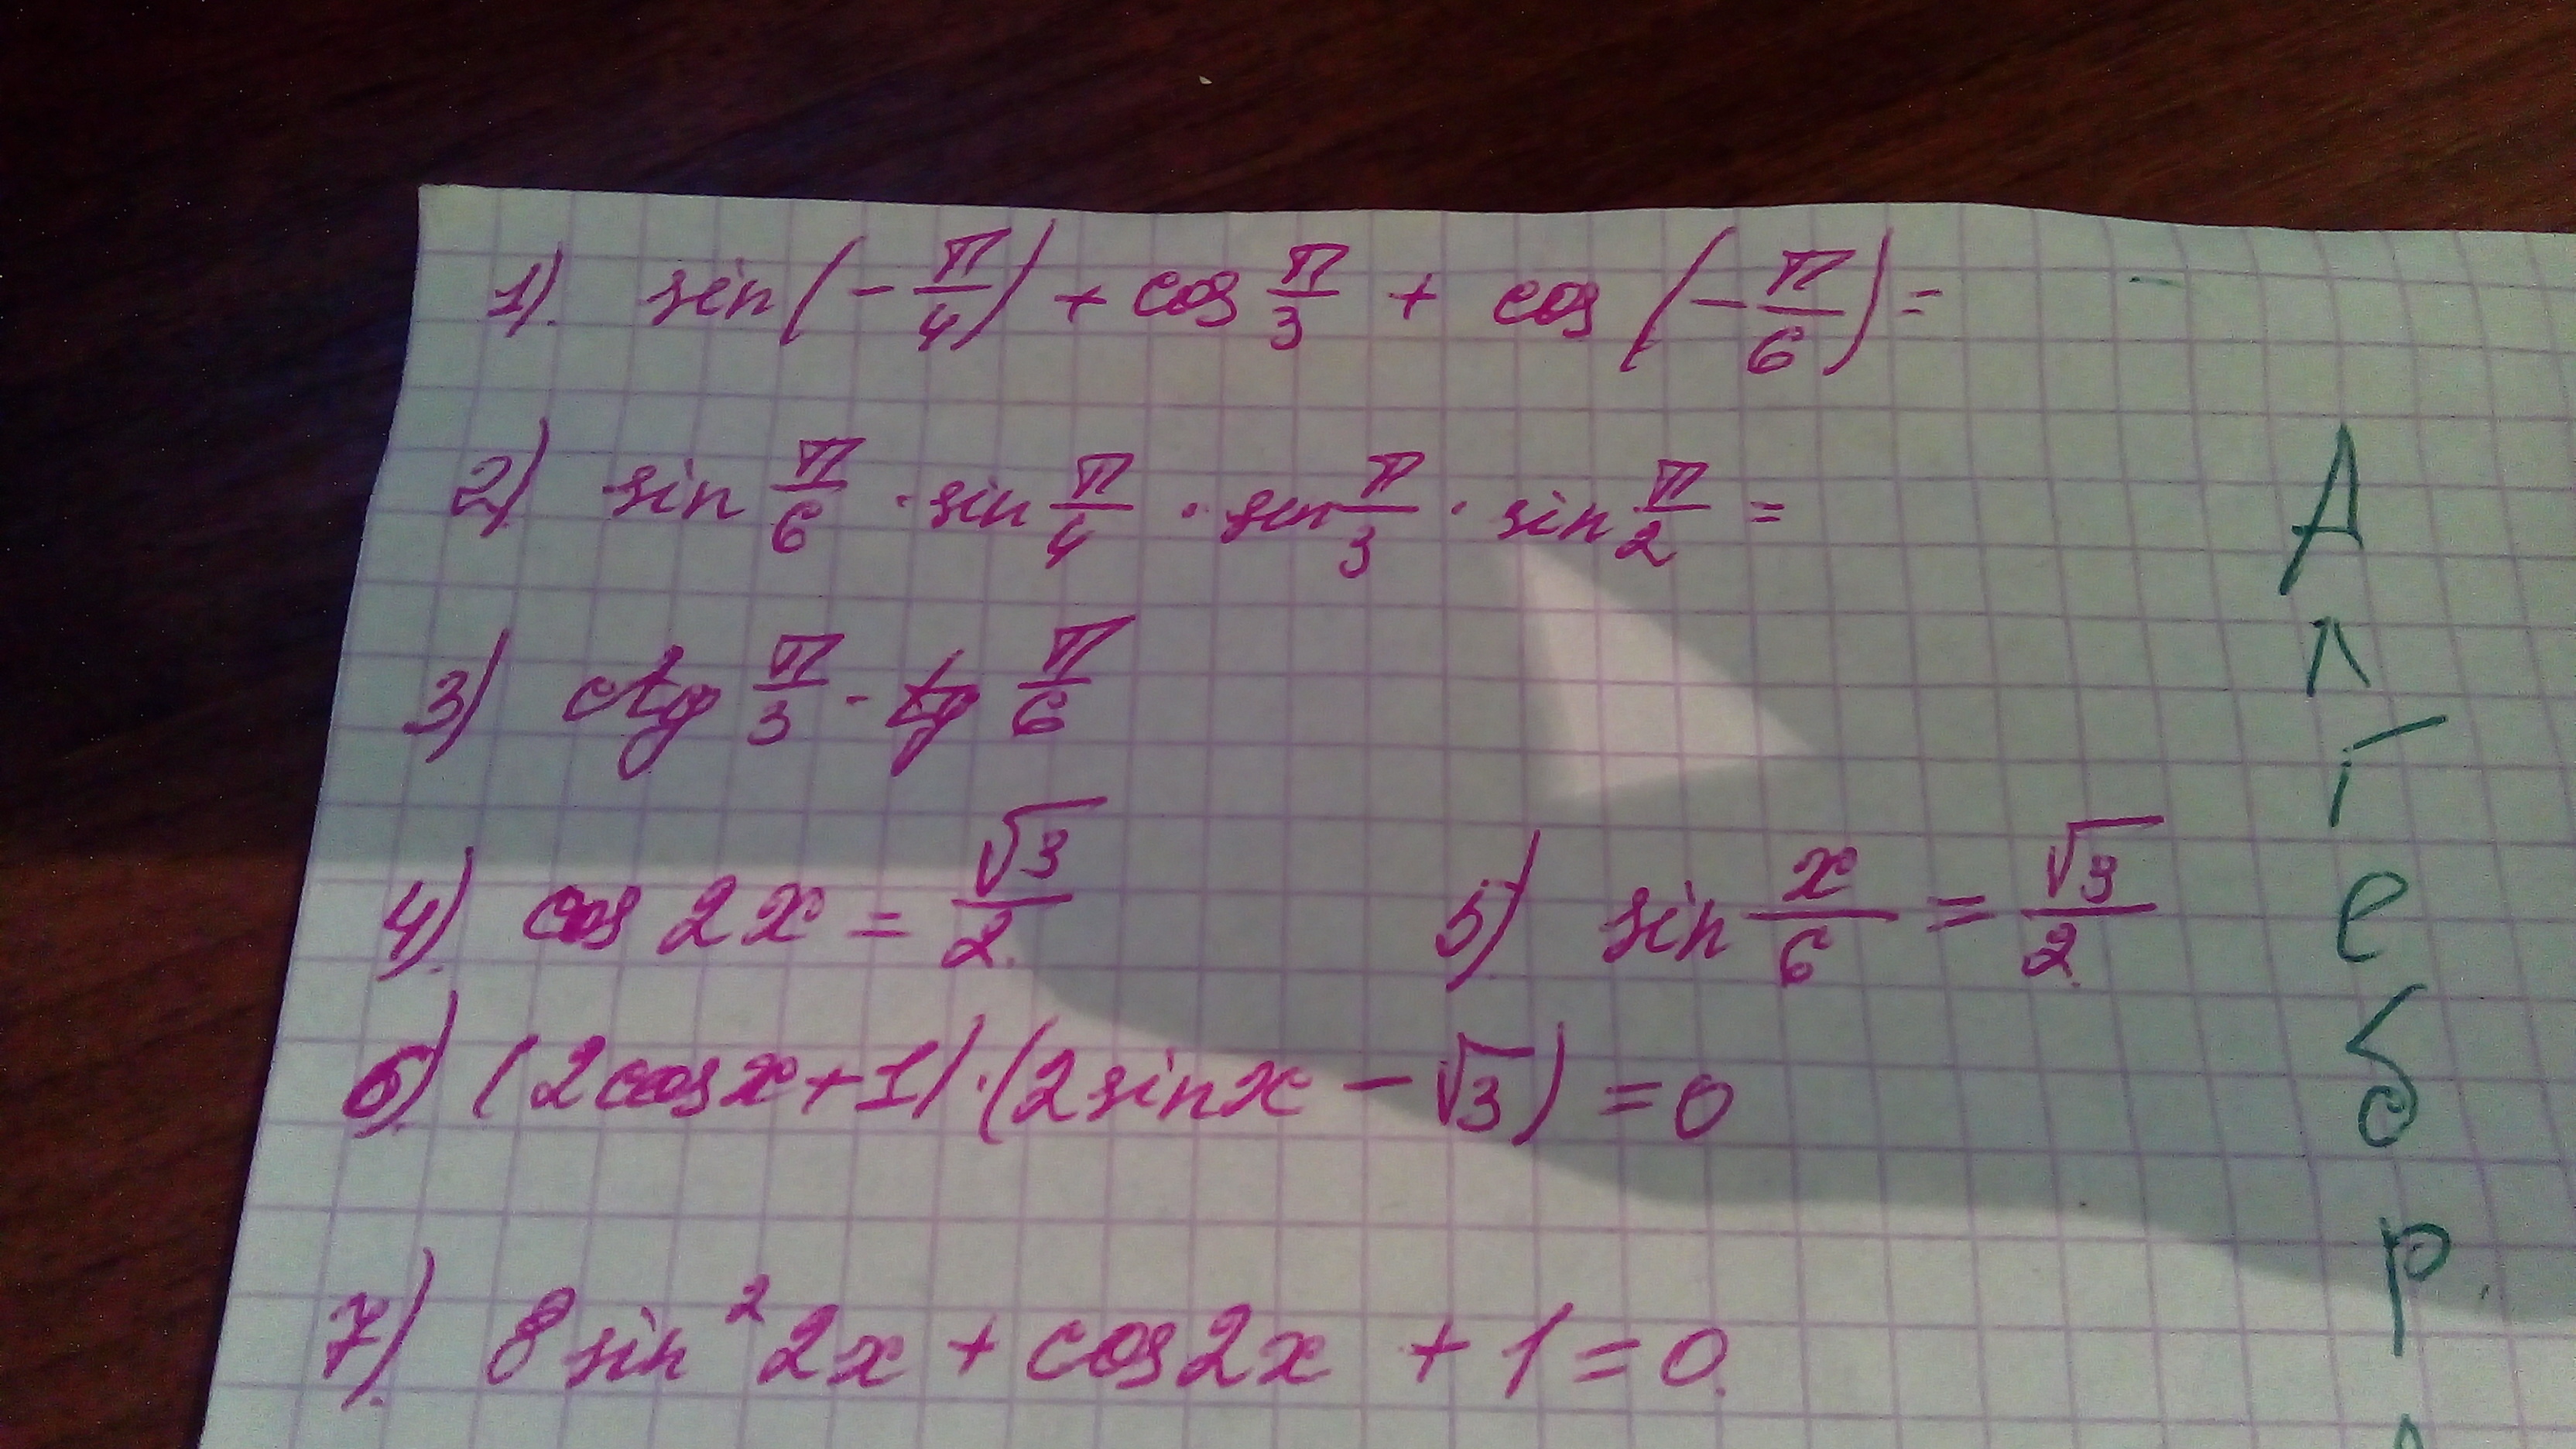 1). sin(-π/4) + cos π/3 + cos(-π/6) =
2) sin π/6 · sin π/4 · sin π/3 · sin π/2 =
3) ctg π/3 - tg π/6
4) cos 2x = √3/2. 5) sin x/6 = √3/2.
6) (2cosx+1)·(2sinx - √3) = 0
7) 8sin²2x + cos2x + 1 = 0.
А
л
г
е
б
р